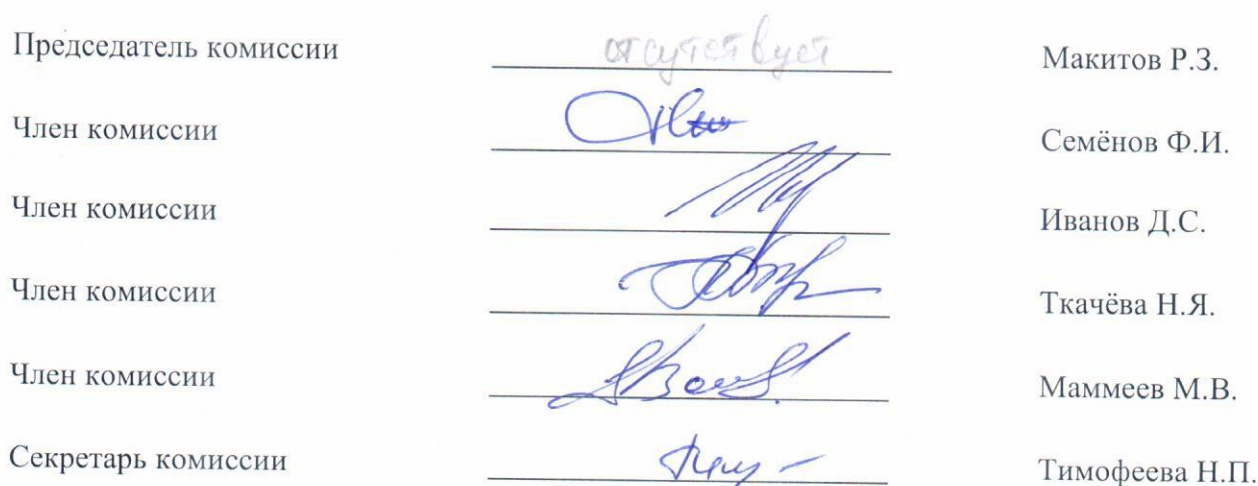 Председатель комиссии отсутствует Макитов Р.З.
Член комиссии Семёнов Ф.И.
Член комиссии Иванов Д.С.
Член комиссии Ткачёва Н.Я.
Член комиссии Маммеев М.В.
Секретарь комиссии Тимофеева Н.П.